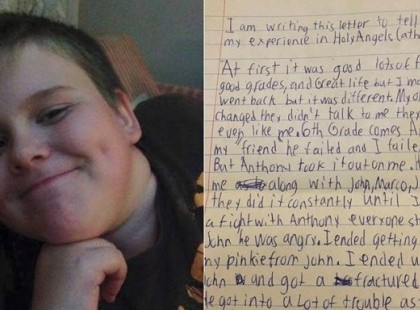 I am writing this letter to tell
my experience in Holy Angels Cath
At first it was good lots of f
good grades, and Great life but I mo
went back but it was different. My
changed they didn't talk to me they
even like me. 6th Grade comes.
my friend he failed and I faile
But Anthony took it out on me. H
me along with John, Marco,
they did it constantly Until I
a fight with Anthony everyone st
John he was angry. I ended getting
my pinkie from John. I ended u
John and got a fractured
e got into a Lot of trouble as